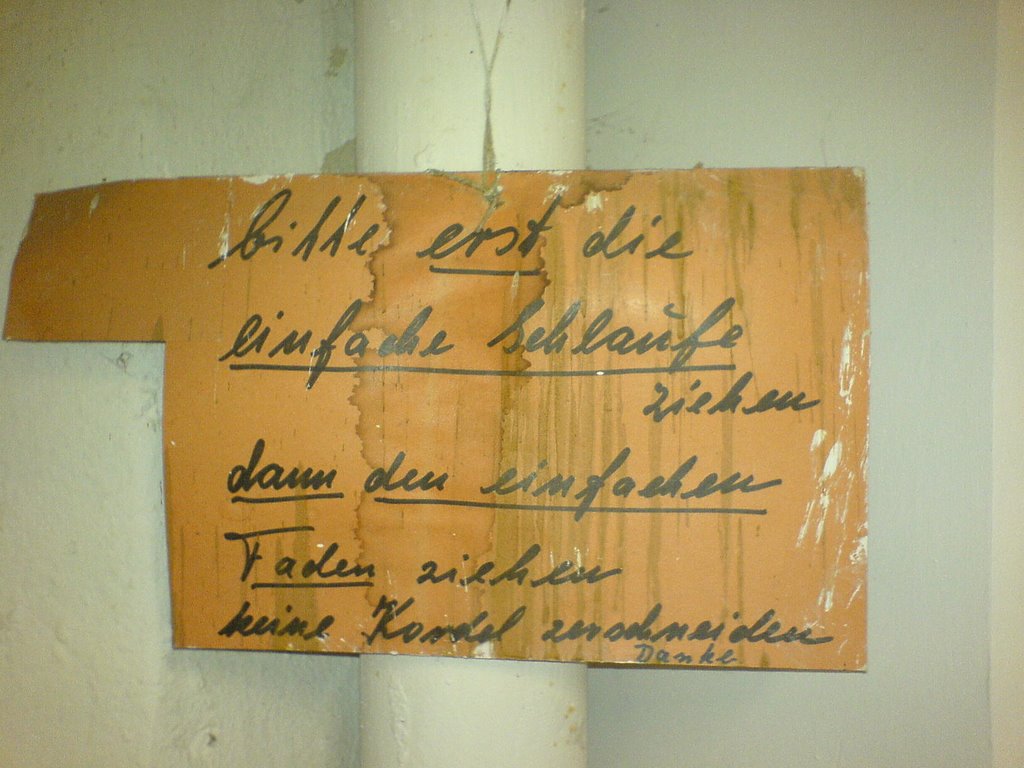 bitte erst die
einfache Schlaufe
ziehen
dann den einfachen
Faden ziehen
keine Kordel zerschneiden
Danke